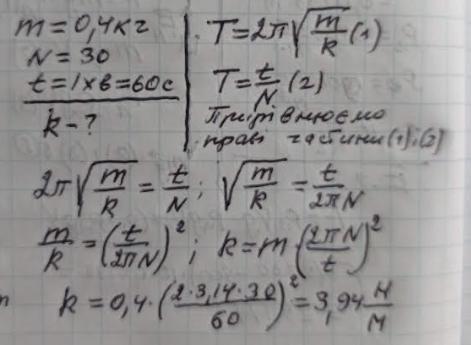 m = 0,4кг
N = 30
t = 1хв = 60с
k - ?
T = 2π√(m/k) (1)
T = t/N (2)
Прирівнюємо
праві частини (1) і (2)
2π√(m/k) = t/N ; √(m/k) = t/(2πN)
m/k = (t/(2πN))² ; k = m·(2πN/t)²
k = 0,4·((2·3,14·30)/60)² = 3,94 Н/м